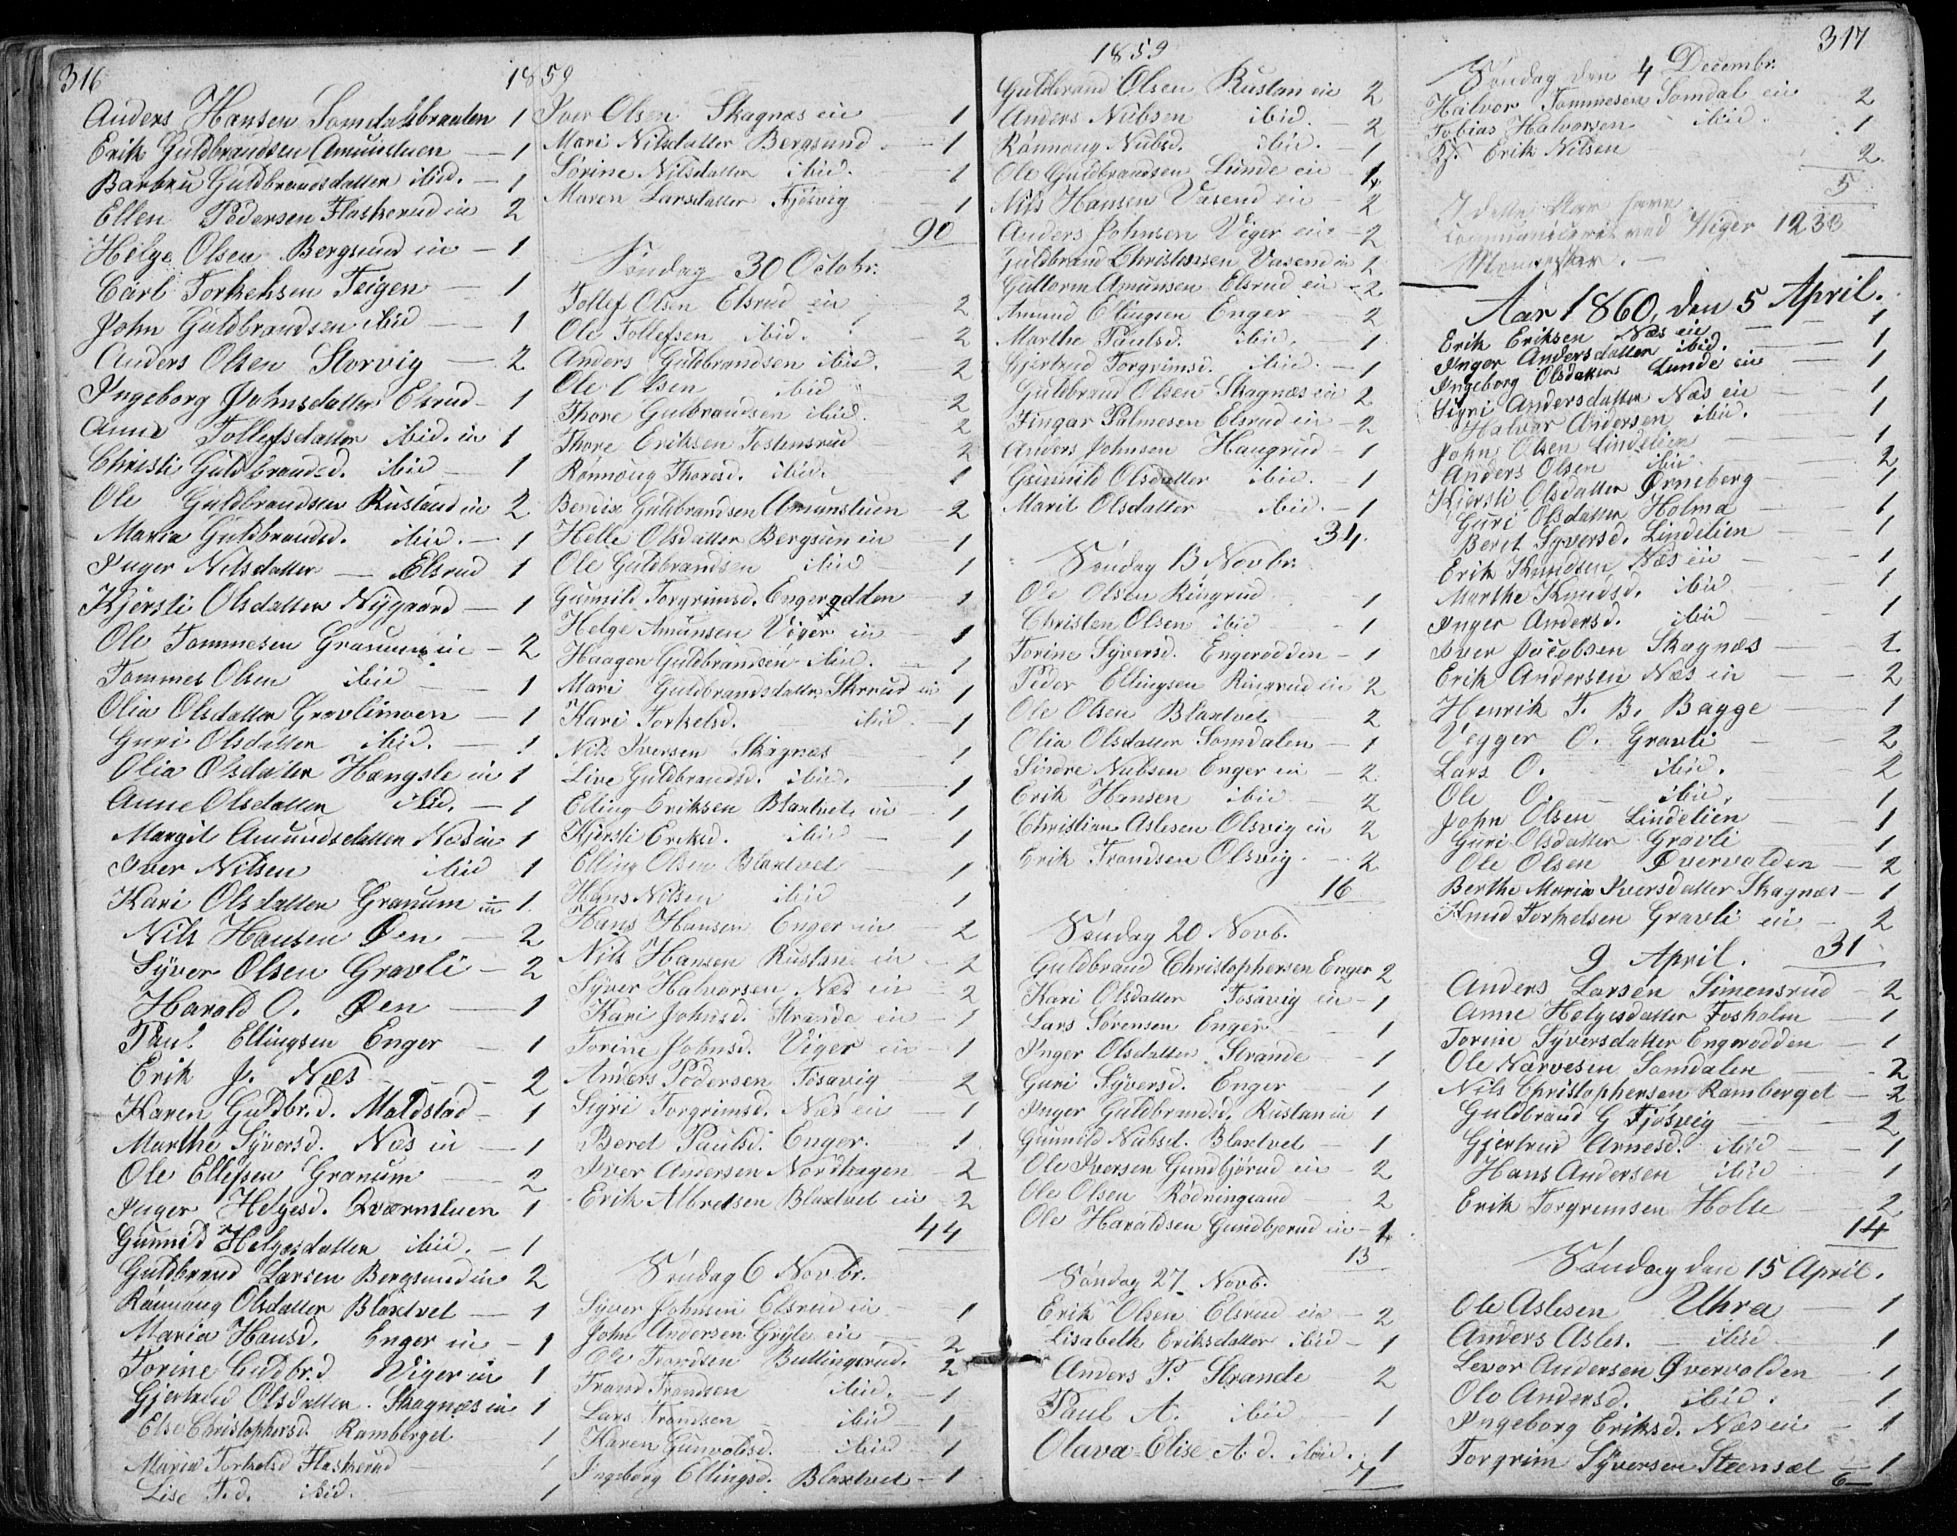 316
1859
Anders Hansen Somdalsbraaten 1
Erik Guldbrandsen Amunstuen — 1
Barbru Guldbrandsdatter ibid. — 1
Ellen Pedersen Flaskerud ein 2
Helge Olsen Bergsund ein — 1
Carl Torkelsen Teigen — 1
John Guldbrandsen ibid — 1
Anders Olsen Storvig — 2
Ingeborg Johnsdatter Elsrud — 1
Anne Tollefsdatter ibid. ein 1
Christi Guldbrandsd. ibid — 1
Ole Guldbrandsen Rustand ein 2
Maria Guldbrandsd. ibid. — 1
Inger Nilsdatter — Elsrud 1
Kjersti Olsdatter Nygaard — 1
Ole Tommesen Granum ein — 2
Tommes Olsen ibid — 1
Olia Olsdatter Gravlimoen — 1
Guri Olsdatter ibid. — 1
Olia Olsdatter Hængsle ein 1
Anne Olsdatter ibid. — 1
Margit Amundsdatter Næs ein 1
Iver Nilsen ibid 1
Kari Olsdatter Granum ein 1
Nils Hansen Øen — 2
Syver Olsen Gravli — 2
Harald O. Øen — 1
Paul Ellingsen Enger — 1
Erik J. Næs — 2
Karen Guldbr.d. Moldstad — 1
Marthe Syversd. Næs ein — 1
Ole Ellefsen Granum — 2
Inger Helgesd. Qværnstuen 1
Gunnild Helgesdatter ibid. — 1
Guldbrand Larsen Bergsund ein 2
Rønnoug Olsdatter Blaxtvet — 1
Maria Hansd. Enger ein — 1
Torine Guldbr.d Viger ein 1
Gjertrud Olsdatter. Skagnæs ein 1
Else Christophersd. Ramberget 1
Maria Torkelsd Flaskerud 1
Lise T.d. ibid. 1
Iver Olsen Skagnæs ein 1
Mari Nilsdatter Bergsund — 1
Sørine Nilsdatter ibid. — 1
Maren Larsdatter Fjøsvig — 1
90
Søndag 30 Octobr.
Tollef Olsen Elsrud ein 2
Ole Tollefsen ibid. 2
Anders Guldbrandsen ibid. 2
Ole Olsen ibid 2
Thore Gulbrandsen ibid. 2
Thore Eriksen Tostensrud 2
Rønnoug Thoresd. ibid. 1
Bendix Guldbrandsen Amunstuen 2
Helle Olsdatter Bergsun ein — 1
Ole Guldbrandsen ibid — 1
Gunnil Torgrimsd. Engerødden — 1
Helge Amunsen Viger ein — 1
Haagen Guldbrandsen ibid. — 1
Mari Guldbrandsdatter Skrrud ein 1
Kari Torkelsd. ibid. — 1
Nils Iversen Skagnæs — 1
Live Guldbrandsd. ibid. 1
Elling Eriksen Blaxtvet ein — 1
Kjersti Eriksd. ibid — 1
Elling Olsen Blaxtvet — 1
Hans Nilsen ibid — 1
Hans Hansen Enger ein — 2
Nils Hansen Rustan ein — 2
Syver Halvorsen Næs ein — 2
Kari Johnsd. Strande ein — 1
Torine Johnsd. Viger ein — 1
Anders Pedersen Tosavig 2
Sigri Torgrimsd. Næs ein — 1
Beret Paulsd. Enger. 1
Iver Andersen Nordhagen 2
Erik Albretsen Blaxtvet ein — 2
44
Søndag 6 Novbr.
Syver Johnsen Elsrud ein 1
John Andersen Gryte ein 2
Ole Trondsen Bullingsrud. 2
Trond Trondsen ibid. — 1
Lars Trondsen ibid — 1
Karen Gunvoldsd. ibid — 1
Ingeborg Ellingsd. Blaxtvet — 1
1859
Guldbrand Olsen Rustan ein 2
Anders Nubsen ibid. — 2
Rønnoug Nubsd. ibid. — 1
Ole Guldbrandsen Lunde ein — 1
Nils Hansen Vasend ein — 2
Anders Johnsen Viger ein — 2
Guldbrand Christensen Vasend ein 2
Guttorm Amunsen Elsrud ein — 2
Amund Ellingsen Enger — 2
Marthe Paulsd. ibid. — 1
Gjertrud Torgrimsd. ibid. — 1
Guldbrand Olsen Skagnæs ein 2
Fingar Palmesen Elsrud ein — 2
Anders Johnsen Haugrud — 1
Gunnild Olsdatter ibid. — 1
Marit Olsdatter ibid. — 1
34.
Søndag 13 Novbr.
Ole Olsen Ringrud 1
Christen Olsen ibid — 1
Torine Syversd. Engerødden — 1
Peder Ellingsen Ringrud ein 2
Ole Olsen Blaxtvet 2
Olia Olsdatter Somdalen — 1
Sindre Nubsen Enger ein — 2.
Erik Hansen ibid 2
Christian Aslesen Olsvig ein 2
Erik Trondsen Olsvig. — 2
16
Søndag 20 Novb.
Guldbrand Christophersen Enger 2
Kari Olsdatter Tosavig ein — 1
Lars Sørensen Enger. — 1
Inger Olsdatter Strande — 1
Guri Syversd. Enger 1
Inger Guldbrandsd. Rustan ein 1
Gunnild Nubsd. Blaxtvet — 1
Ole Iversen Gundbjørud ein — 2
Ole Olsen Rødningsand — 2
Ole Haraldsen Gundbjorud ein — 1.
13
Søndag 27 Novb.
Erik Olsen Elsrud ein — 2
Lisabeth Eriksdatter ibid — 1
Anders P. Strande 2
Paul A. ibid — 1
Olava Elise A.d. ibid. 1
7
317
Søndag den 4 Decembr.
Halvor Tommesen Somdal ein 2
Tobias Halvorsen ibid. 1
Erik Nilsen 2.
5
I dette Aar have
communiceret ved Viger 1233
Mennesker. —
Aar 1860, den 5 April.
Erik Eriksen Næs ein — 1
Inger Andersdatter ibid. — 1
Ingeborg Olsdatter Lunde ein 1
Sigri Andersdatter Næs ein — 1
Halvor Andersen ibid. 1
John Olsen Lindelien — 1
Anders Olsen ibid. — 2
Kjersti Olsdatter Ørneberg — 1
Guri Olsdatter Holma — 1
Beret Syversd. Lindelien — 1
Erik Knudsen Næs ein — 1
Marthe Knudsd. ibid — 1
Inger Andersd. ibid — 1
Iver Jacobsen Skagnæs — 2
Erik Andersen Næs ein — 2
Henrik T. B. Bagge — 1
Vegger O. Gravli — 2
Lars O. ibid. — 2
Ole O. ibid. — 1
John Olsen Lindelien — 1
Guri Olsdatter Gravli 1
Ole Olsen Øvervolden — 2
Berthe Maria Iversdatter Skagnæs — 1
Knud Torkelsen Gravli ein 2
31
9 April.
Anders Larsen Simensrud — 2
Anne Helgesdatter Fosholm — 1
Torine Syversdatter Engerodden — 1
Ole Narvesen Somdalen — 2
Nils Christophersen Ramberget — 2
Guldbrand G Fjøsvig — 2
Gjertrud Arnesd. ibid — 1
Hans Andersen ibid 1
Erik Torgrimsen Holte — 2
14
Søndag den 15 April.
Ole Aslesen Uhra — 1
Anders Asles. — ibid 1
Levor Andersen Øvervolden — 1
Olo Andersd. ibid. — 1
Ingeborg Eriksd. Næs ein — 1
Torgrim Syversen Steensæt — 1
6